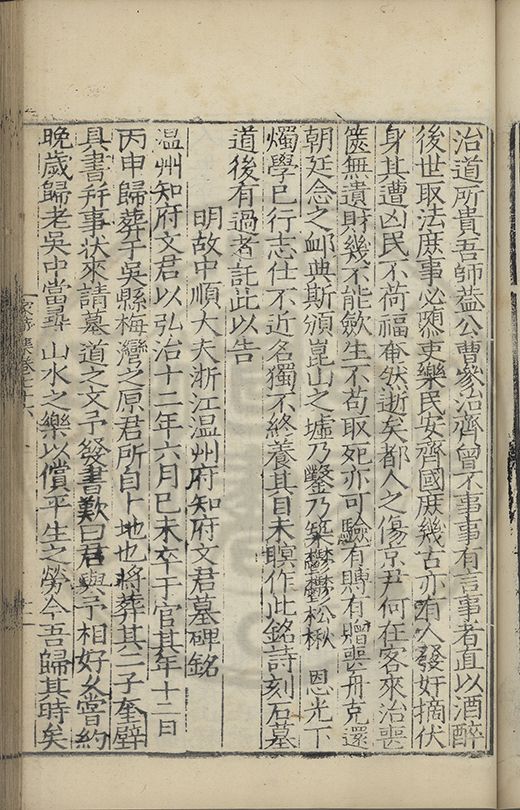 治道所貴吾師蓋公曹參治齊曾不事事有言事者直以酒醉
後世取法庶事必隳吏樂民安齊國庶幾古亦有人發奸摘伏
身其遭凶民不荷福奄然逝矣都人之傷京尹何在客來治喪
篋無遺財幾不能斂生不苟取死亦可驗有賻有贈喪舟克還
朝廷念之卹典斯頒崑山之墟乃鑿乃築鬱鬱松楸 恩光下
燭學已行志仕不近名獨不終養其目未瞑作此銘詩刻石墓
道後有過者託此以告
明故中順大夫浙江温州府知府文君墓碑銘
温州知府文君以弘治十二年六月己未卒于官其年十二月
丙申歸葬于吳縣梅灣之原君所自卜地也將葬其二子奎壁
具書幷事狀來請墓道之文予發書歎曰君與予相好久嘗約
晚歲歸老吳中當尋 山水之樂以償平生之勞今吾歸其時矣
家藏集卷七十六